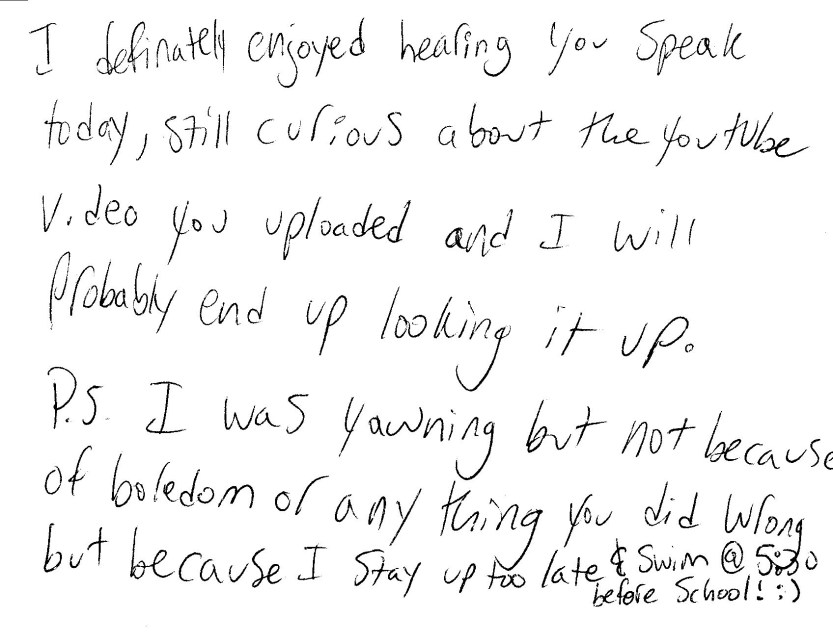 I definately enjoyed hearing you speak
today, still curious about the youtube
video you uploaded and I will
probably end up looking it up.
P.S. I was yawning but not because
of boredom or any thing you did wrong
but because I stay up too late & swim @ 5:30
before School! :)